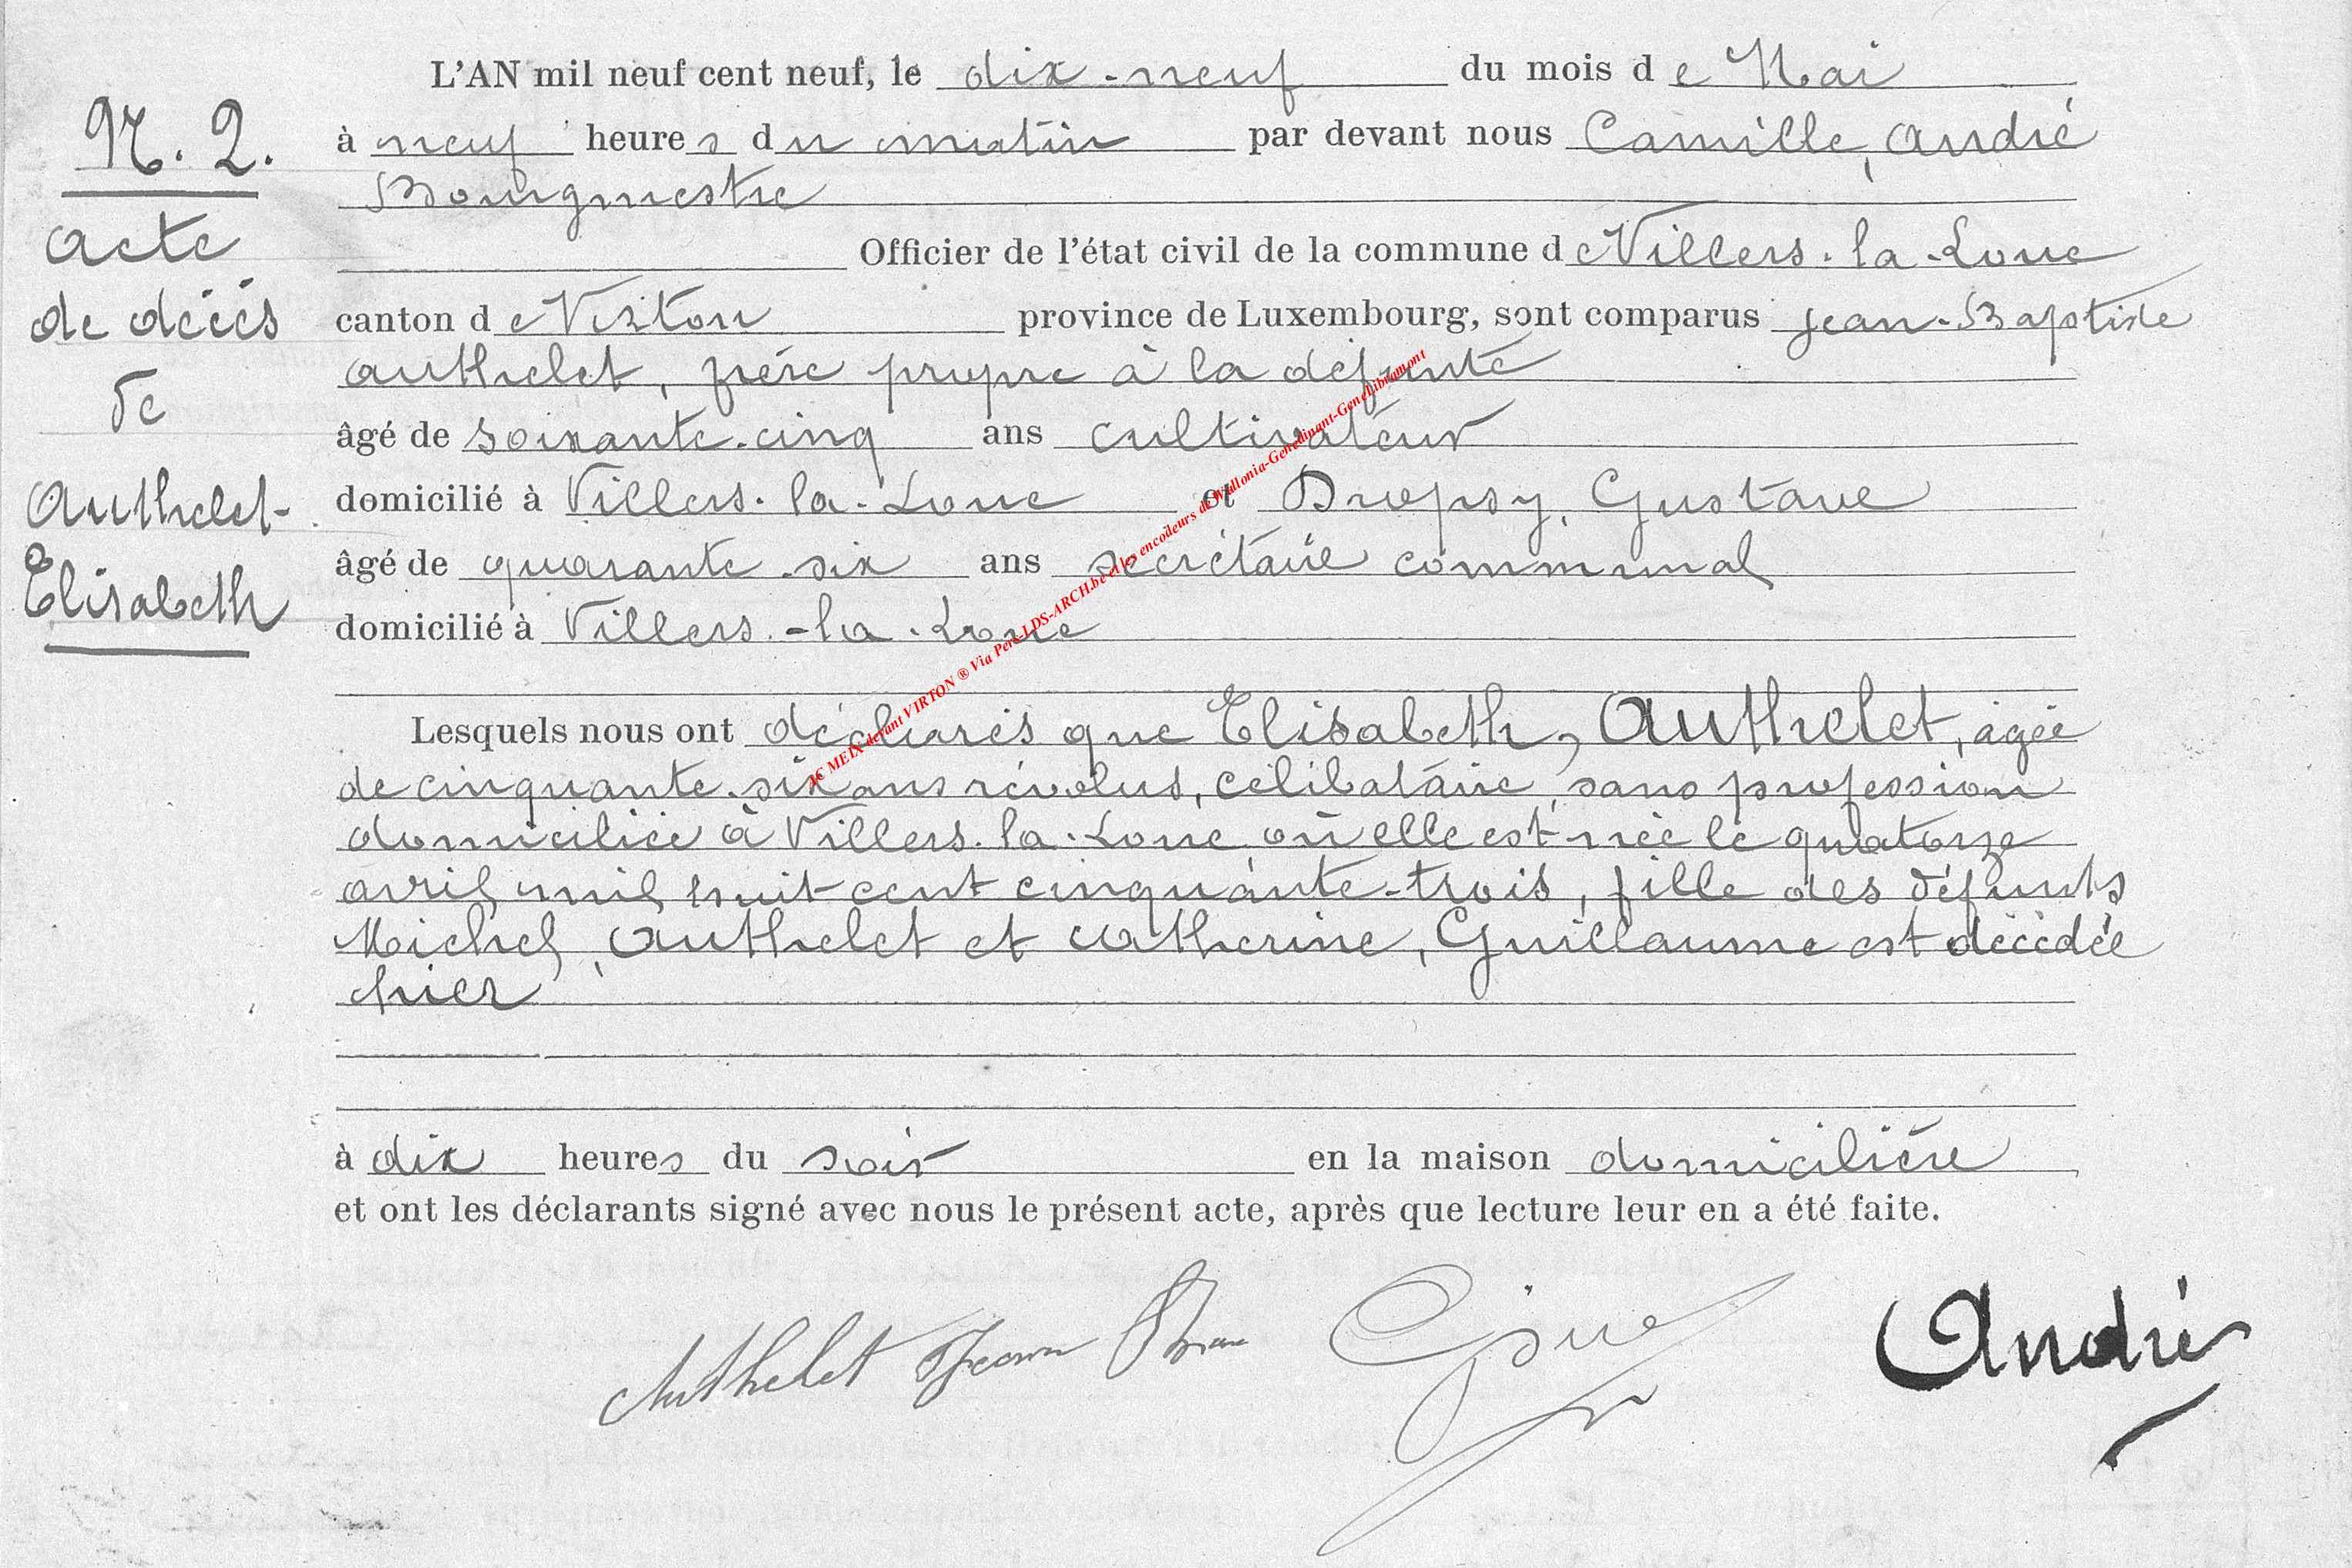 N. 2.
acte
de décés
de
Authelet
Elisabeth
L'AN mil neuf cent neuf, le dix-neuf du mois de Mai
à neuf heures du matin par devant nous Camille, André
Bourgmestre
Officier de l'état civil de la commune de Villers-la-Loue
canton de Virton province de Luxembourg, sont comparus Jean-Baptiste
Authelet, frére propre à la défunte
âgé de soixante-cinq ans cultivateur
domicilié à Villers-la-Loue et Dropsy, Gustave
âgé de quarante-six ans secrétaire communal
domicilié à Villers-la-Loue
Lesquels nous ont déclarés que Elisabeth, Authelet, agée
de cinquante-six ans révolus, célibataire, sans profession
domiciliée à Villers-la-Loue, où elle est née le quatorze
avril mil huit cent cinquante-trois, fille des défunts
Michel, Authelet et Catherine, Guillaume est décédée
hier
à dix heures du soir en la maison domiciliére
et ont les déclarants signé avec nous le présent acte, après que lecture leur en a été faite.
Authelet Jean André
JC MEIX devant VIRTON ® Via Pers-LDS-ARCH.be et les encodeurs de Wallonia-Genedinant-GeneLibramont